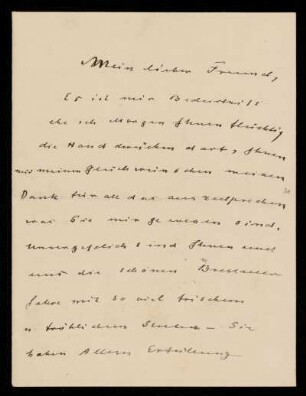 Mein lieber Freund,
Es ist mir Bedürfniss
ehe ich Morgen Ihnen flüchtig
die Hand drücken darf, Ihnen
mit meinen Glückwünschen meinen
Dank für all das auszusprechen
was Sie mir gewesen sind.
Unvergesslich sind Ihnen und
uns die schönen Breslauer
Jahre mit so viel frischem
u fröhlichem Streben – Sie
haben Allem